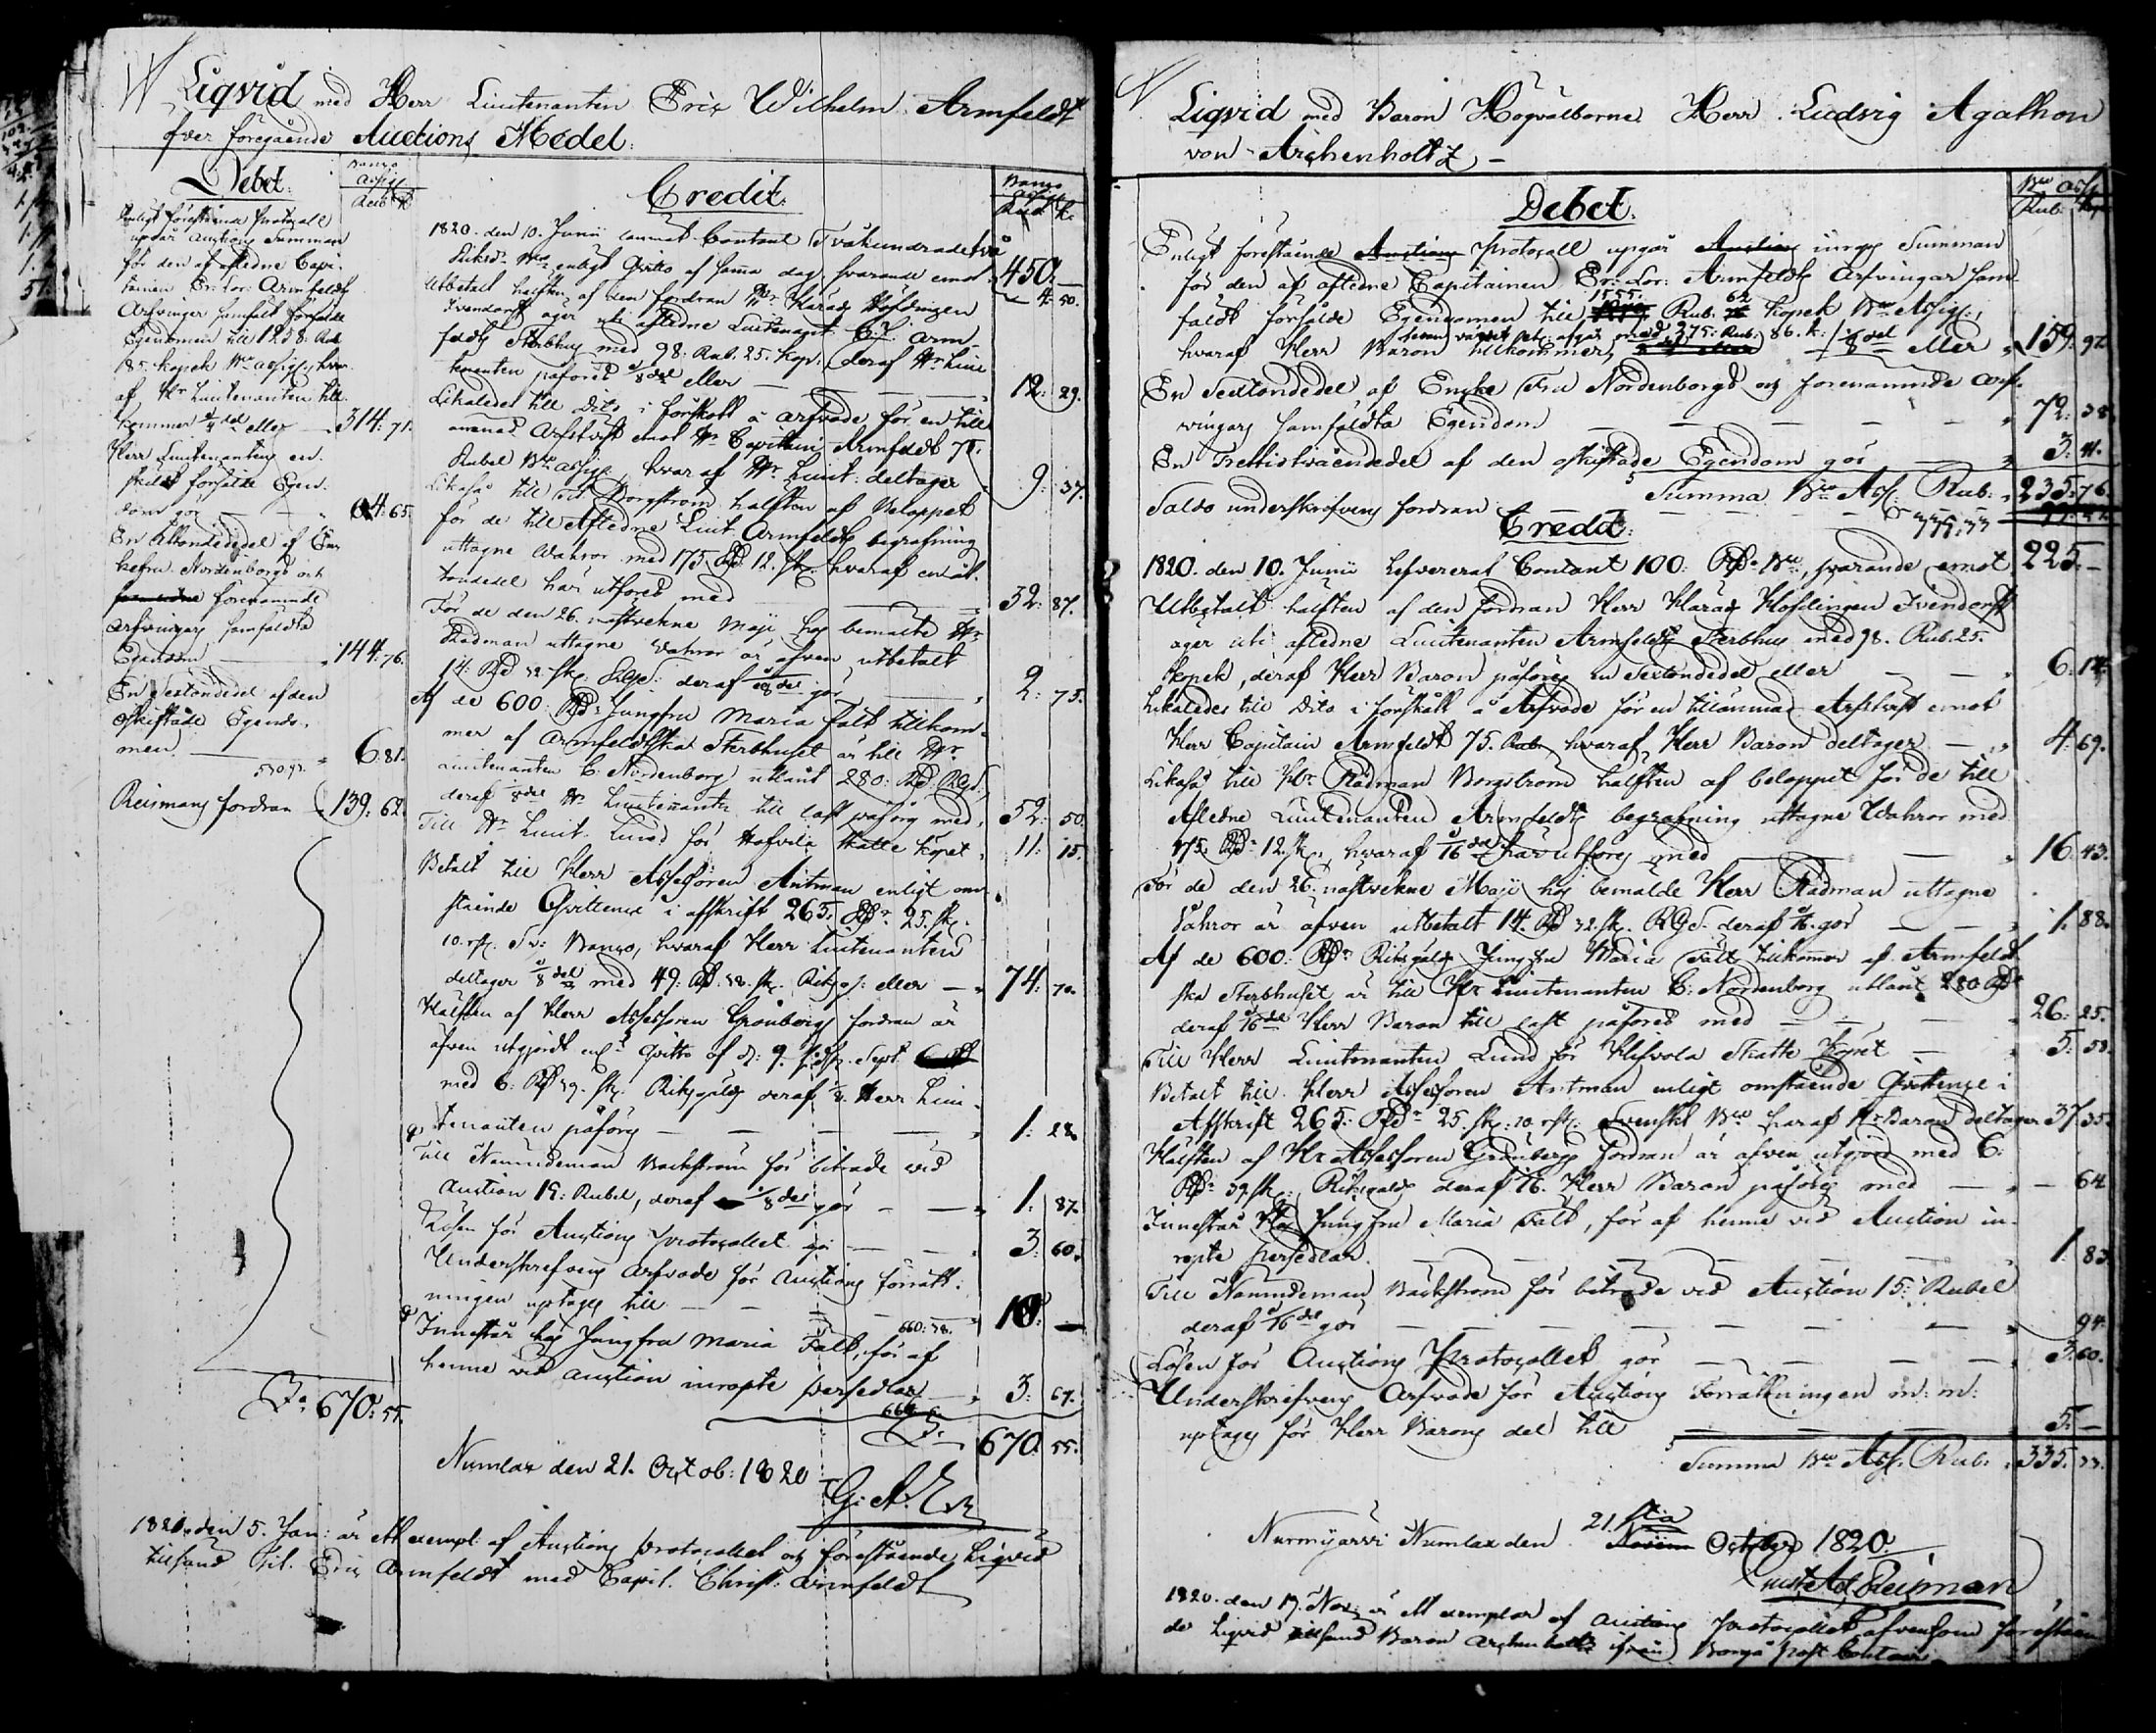 Liqvid med Herr Lieutenanten Eric Wilhelm Armfeldt
öfver föregående Auctions Medel:
Debet:
Banco
Assig
Rub k
Enligt förestående Protocoll
upgår Auctions Summan
för den af aflednе Capi-
tainen Er: Lor: Armfeldts
Arfvingar samfält försålde
Egendomen till 1258: Rub.
85. kopek Bco assig:, hvar-
af Hr Lieutenanten till-
kommer 1/4 del eller — 314: 71.
Herr Lieutenantens en-
skildt försålde Egen-
dom gör — 64: 65.
En Åttondedel af En-
kefru Nordenborgs och
förenämnde
Arfvingars samfäldta
Egendom — 144: 76.
En Sextondedel af den
oskiftade Egendo-
men — 6: 81.
530: 93.
Reimans fordran 139: 62.
Sa 670: 55.
Credit:
Banco
Assig
Rub k.
1820. den 10. Junii lemnat Contant Tvåhundrade två
Riksdr Bco enligt Qvitto af samma dag, svarande emot 450. —
4. 50.
Utbetalt hälften af den fordran Hr Härads Höfdingen
Ivendorff äger uti aflednе Lieutenant C. J. Arm-
feldts Sterbhus med 98: Rub. 25. kop: deraf Hr Lieu-
tenanten påföres 1/8 del eller — 12: 29.
Likaledes till Dito i förskott å arfvode för en till-
ämnad Arfskift emot Hr Capitain Armfeldt 75.
Rubel Bco assig: hvaraf Hr Lieut: deltager 9: 37.
Likaså till Borgström hälften af Beloppet
för de till Aflednе Lieut. Armfeldts begrafning
uttagne Wahror med 175. Rd 12. sk. hvaraf en åt-
tondedel här utföres med — 32: 87.
För de den 26. nästvekne Maji hos bemälte Hr
Rådman uttagne Wahror är äfven utbetalt
14: Rd 32. sk: RGs: deraf 1/8 del gör — 2: 75.
Af de 600: Rdr Jungfru Maria Falk tillkom-
mer af Armfeldtska Sterbhuset är till Hr
Lieutenanten C. Nordenborg utlånt 280: Rd: RGd:,
deraf 1/8 del Hr Lieutenanten till last påförs med, 52: 50.
Till Hr Lieut. Lund för Hofvila Skatte köpet 11: 15.
Betalt till Herr Assessoren Antman enligt om-
stående Qvittence i afskrift 265. Rdr 25. sk.
10. rst. Sv: Banco, hvaraf Herr Lieutenanten
deltager 1/8 del med 49: Rd. 38. sk. Riksg: eller — 74: 70.
Hälften af Herr Assessoren Grönbergs fordran är
äfven utgjordt enl. Qvitto af d: 9. Sept.
med 6: Rd 39. sk. Riksgälds deraf 1/8 Herr Lieu-
tenanten påförs — 1: 28.
Till Nämndeman Bäckström för biträde vid
Auction 15: Rubel, deraf 1/8 del gör — 1: 87.
Lösen för Auctions Protocollet gör — 3: 60.
Underskrefvens Arfvode för Auctions förrätt-
ningen uptages till — 10: —
660: 38.
Innestår hos Jungfru Maria Falk, för af
henne vid auction inropte persedlar — 3: 67.
Sa 670: 55.
Numlax den 21. Octob: 1820
G: A. R
1821. den 5. Jan: är Ett exempl: af Auctions Protocollet och förestående Liqvid
tillsänd Tit. Eric Armfeldt med Capit. Christ: Armfeldt
Liqvid med Baron Högvälborne Herr Ludvig Agathon
von Archenholtz —
Debet.
Bco Ass
Rub. Kop.
Enligt förestående Auctions Protocoll upgår Auctions Summan
för den af aflednе Capitainen Er: Lor: Armfeldts Arfvingar sam-
fäldt försålde Egendomen till 1555. Rub. 62 kopek Bco Assig:,
afgår med 275: Rub: 86. k:
hvaraf Herr Baron tillkommer 1/8 del eller 159: 97.
En Sextondedel af Encke Fru Nordenborgs och förenämnde Arf-
vingars samfäldta Egendom — 72: 38.
En Trettiotvåendedel af den oskiftade Egendom gör — 3: 41.
Summa Bco Ass Rub. 235: 76.
Saldo underskrefvens fordran —
Credit:
1820. den 10. Junii Lefvererat Contant 100: Rdr Bco, svarande emot 225. —
Utbetalt hälften af den fordran Herr Härads Höfdingen Ivendorff
äger uti aflednе Lieutenanten Armfeldts Sterbhus med 98. Rub. 25.
kopek, deraf Herr Baron påförs en Sextondedel eller — 6: 14.
Likaledes till Dito i förskott å Arfvode för en tillämnad Arfskift emot
Herr Capitain Armfeldt 75. Rub. hvaraf Herr Baron deltager — 4: 69.
Likaså till Hr Rådman Borgström hälften af beloppet för de till
Aflednе Lieutenanten Armfeldts begrafning uttagne Wahror med
175. Rdr 12. sk., hvaraf 1/16 del här utförs med — 16: 43.
För de den 26. nästvekne Maji hos bemälde Herr Rådman uttagne
Wahror är äfven utbetalt 14. Rd 32. sk. RGs. deraf 1/16. gör — 1. 88.
Af de 600: Rdr Riksgälds Jungfru Maria Falk tillkommer af Armfeldt-
ska Sterbhuset är till Hr Lieutenanten C: Nordenborg utlånt 280 Rdr
deraf 1/16 del Herr Baron till last påföres med — 26: 25.
Till Herr Lieutenanten Lund för Hofvola Skatte köpet — 5: 58.
Betalt till Herr Assessoren Antman enligt omstående Qvittence i
Afskrift 265: Rdr 25. sk: 10. rst: Svenskt Bco hvaraf Hr Baron deltager 37. 35.
Hälften af Hr Assessoren Grönbergs fordran är äfven utgjord med 6:
Rdr 39 sk: Riksgälds deraf 1/16. Herr Baron påförs med — 64
Innestår hos Jungfru Maria Falk, för af henne vid Auction in-
ropte persedlar — 1. 83.
Till Nämndeman Bäckström för biträde vid Auction 15: Rubel
deraf 1/16 del gör — 94.
Lösen för Auctions Protocollet gör — 3. 60.
Underskrefvens Arfvode för Auctions Förrättningen m: m:
uptages för Herr Barons del till — 5. —
Summa Bco Ass. Rub. 335. 33.
Nurmijärvi Numlax den 21. sta October 1820.
Ad. Reiman
1820. den 19. Nov. är Ett exemplar af Auctions Protocollet äfvensom förestående
Liqvid tillsänd Baron Archenholtz ifrån Borgå Post Contoir.